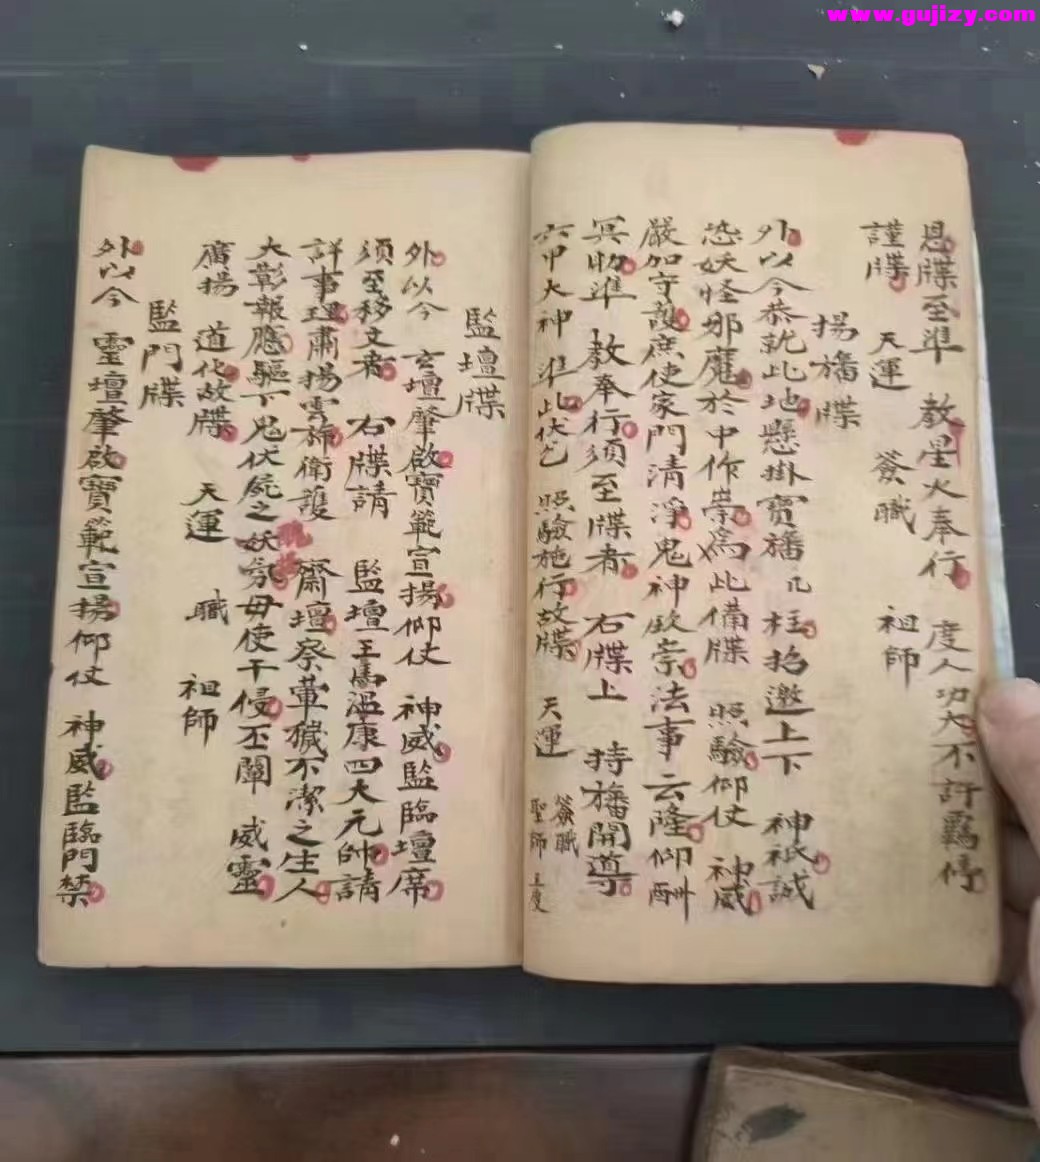 www.gujizy.com
恩牒至準　教星火奉行　度人功大不許羈停
謹牒　天運　簽職　祖師
揚旛牒
外以今恭就此地懸掛寶旛几柱招邀上下　神祇誠
恐妖怪邪魔於中作祟為此備牒　照驗仰仗　神威
嚴加守護庶使家門清淨鬼神欽崇法事云隆仰酬
冥眖準　教奉行須至牒者　右牒上　持旛開導
六甲大神　準此伏乞　照驗施行故牒　天運　簽職　聖師　主度
監壇牒
外以今　玄壇肇啟寶範宣揚仰仗　神威監臨壇席
須至移文者　右牒請　監壇王馬溫康四大元帥請
詳事理肅揚雲旆衛護　齋壇察葷穢不潔之生人
大彰報應驅下鬼伏屍之妖氛毋使干侵丕闡　威靈
廣揚　道化故牒　天運　職　祖師
監門牒
外以今　靈壇肇啟寶範宣揚仰仗　神威監臨門禁